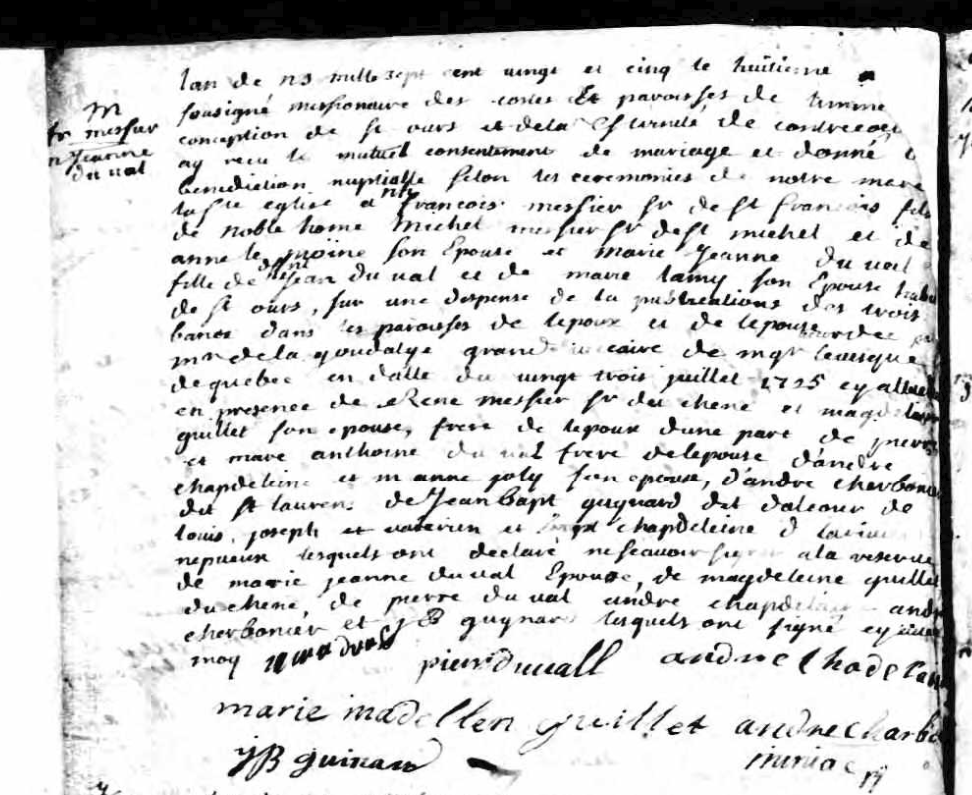 M
fr messier
Jeanne
du val
lan de ns mille sept cent vingt et cinq le huitieme
sousigné missionaire des costes et paroisses de limma
conception de st ours et dela ste trinité de contrecoeu
ay recu le mutuel consentement de mariage et donné
benediction nuptialle selon les ceremonies de notre mere
la ste eglise a francois messier sr de st francois fils
de noble home Michel messier sr de st michel et de
anne le moine son epouse et Marie Jeanne du val
fille de Jean du val et de marie lamy son Epouse
de st ours, sur une dispense de la publications des trois
bancs dans les paroisses de lepoux et de lepouse
mr de la goudalye grand vicaire de mgr levesque
de quebec en datte du vingt trois juillet 1725
en presence de Rene messier sr du chene et magd
guillet son epouse, frere de lepoux dune part de pierre
et marc anthoine du val frere de lepouse d'andre
chapdeleine et m anne joly son epouse, d'andre cherbonie
dit st laurens de Jean bapt guynard de
louis, joseph et et chapdeleine
nepveux lesquels ont declaré ne scavoir signer a la reserve
de marie jeanne du val Epouse, de magdeleine guillet
du chene, de pierre du val andre chapdelaine andre
cherbonier et J B guynard lesquels ont signé
moy
pier duvall andre Chadelain
marie madellen guillet andre charbo
JB guinard miniac